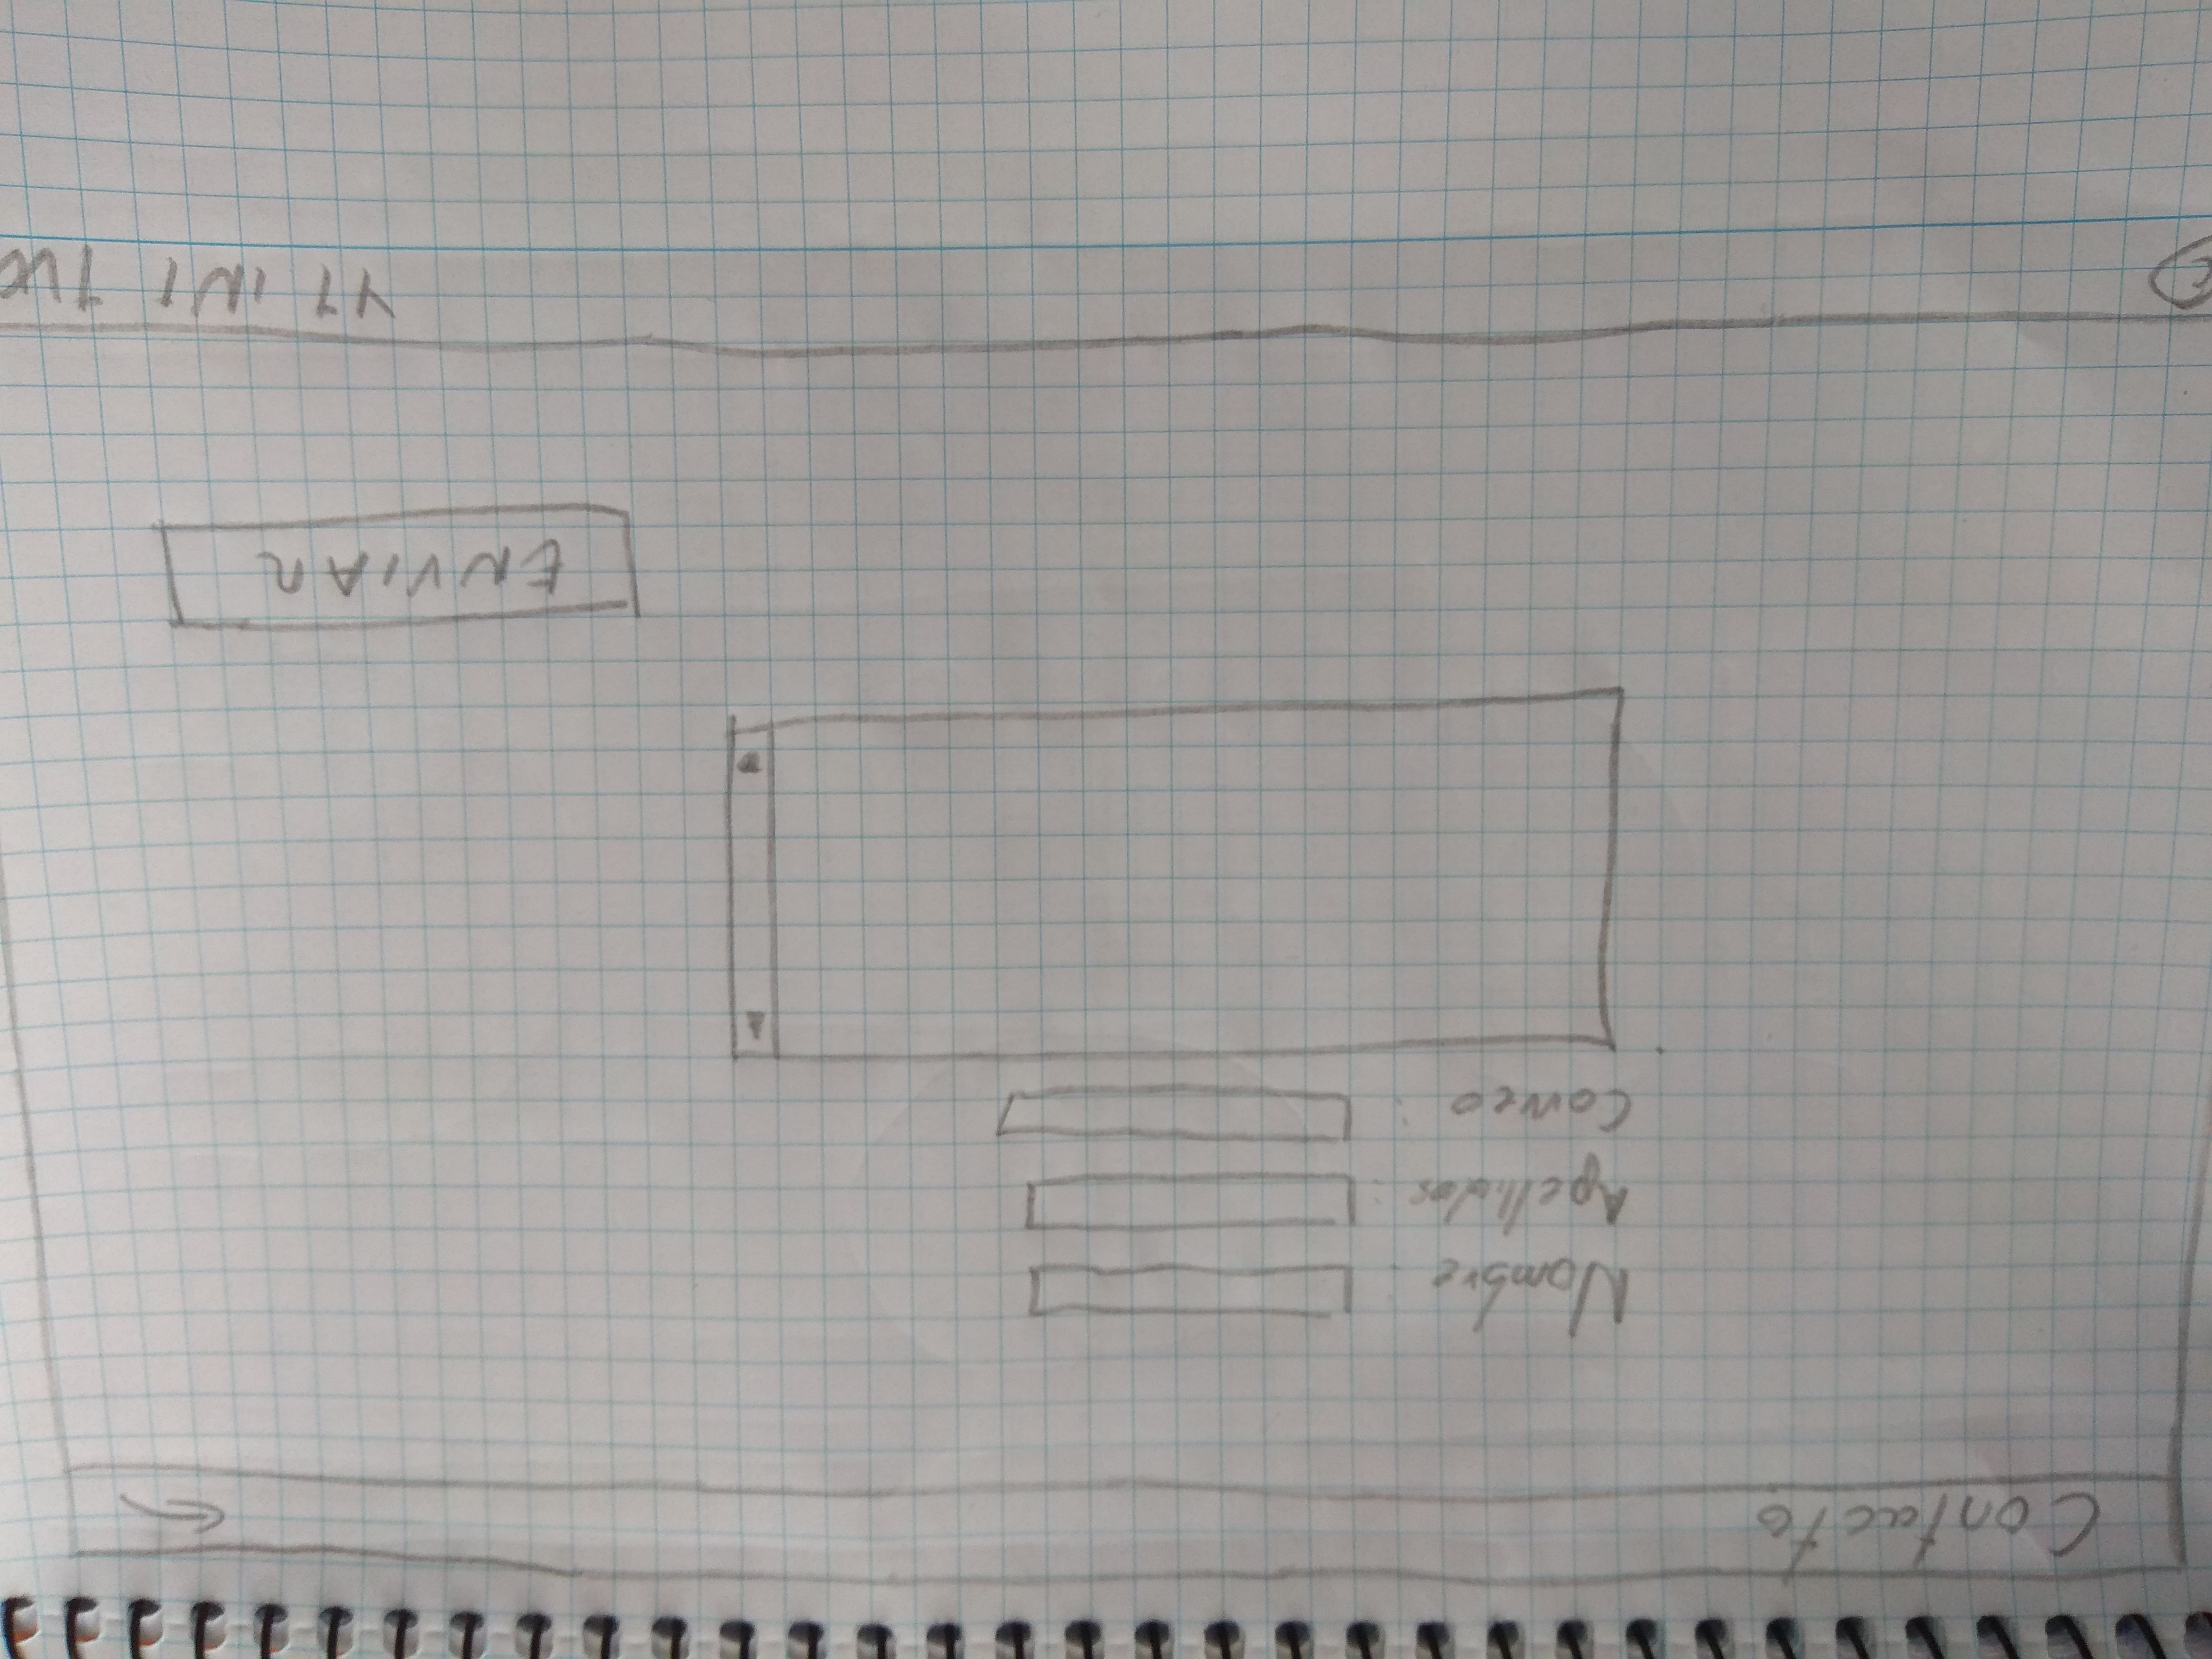 Contacto
Nombre :
Apellidos :
Correo :
ENVIAR
© YT INT